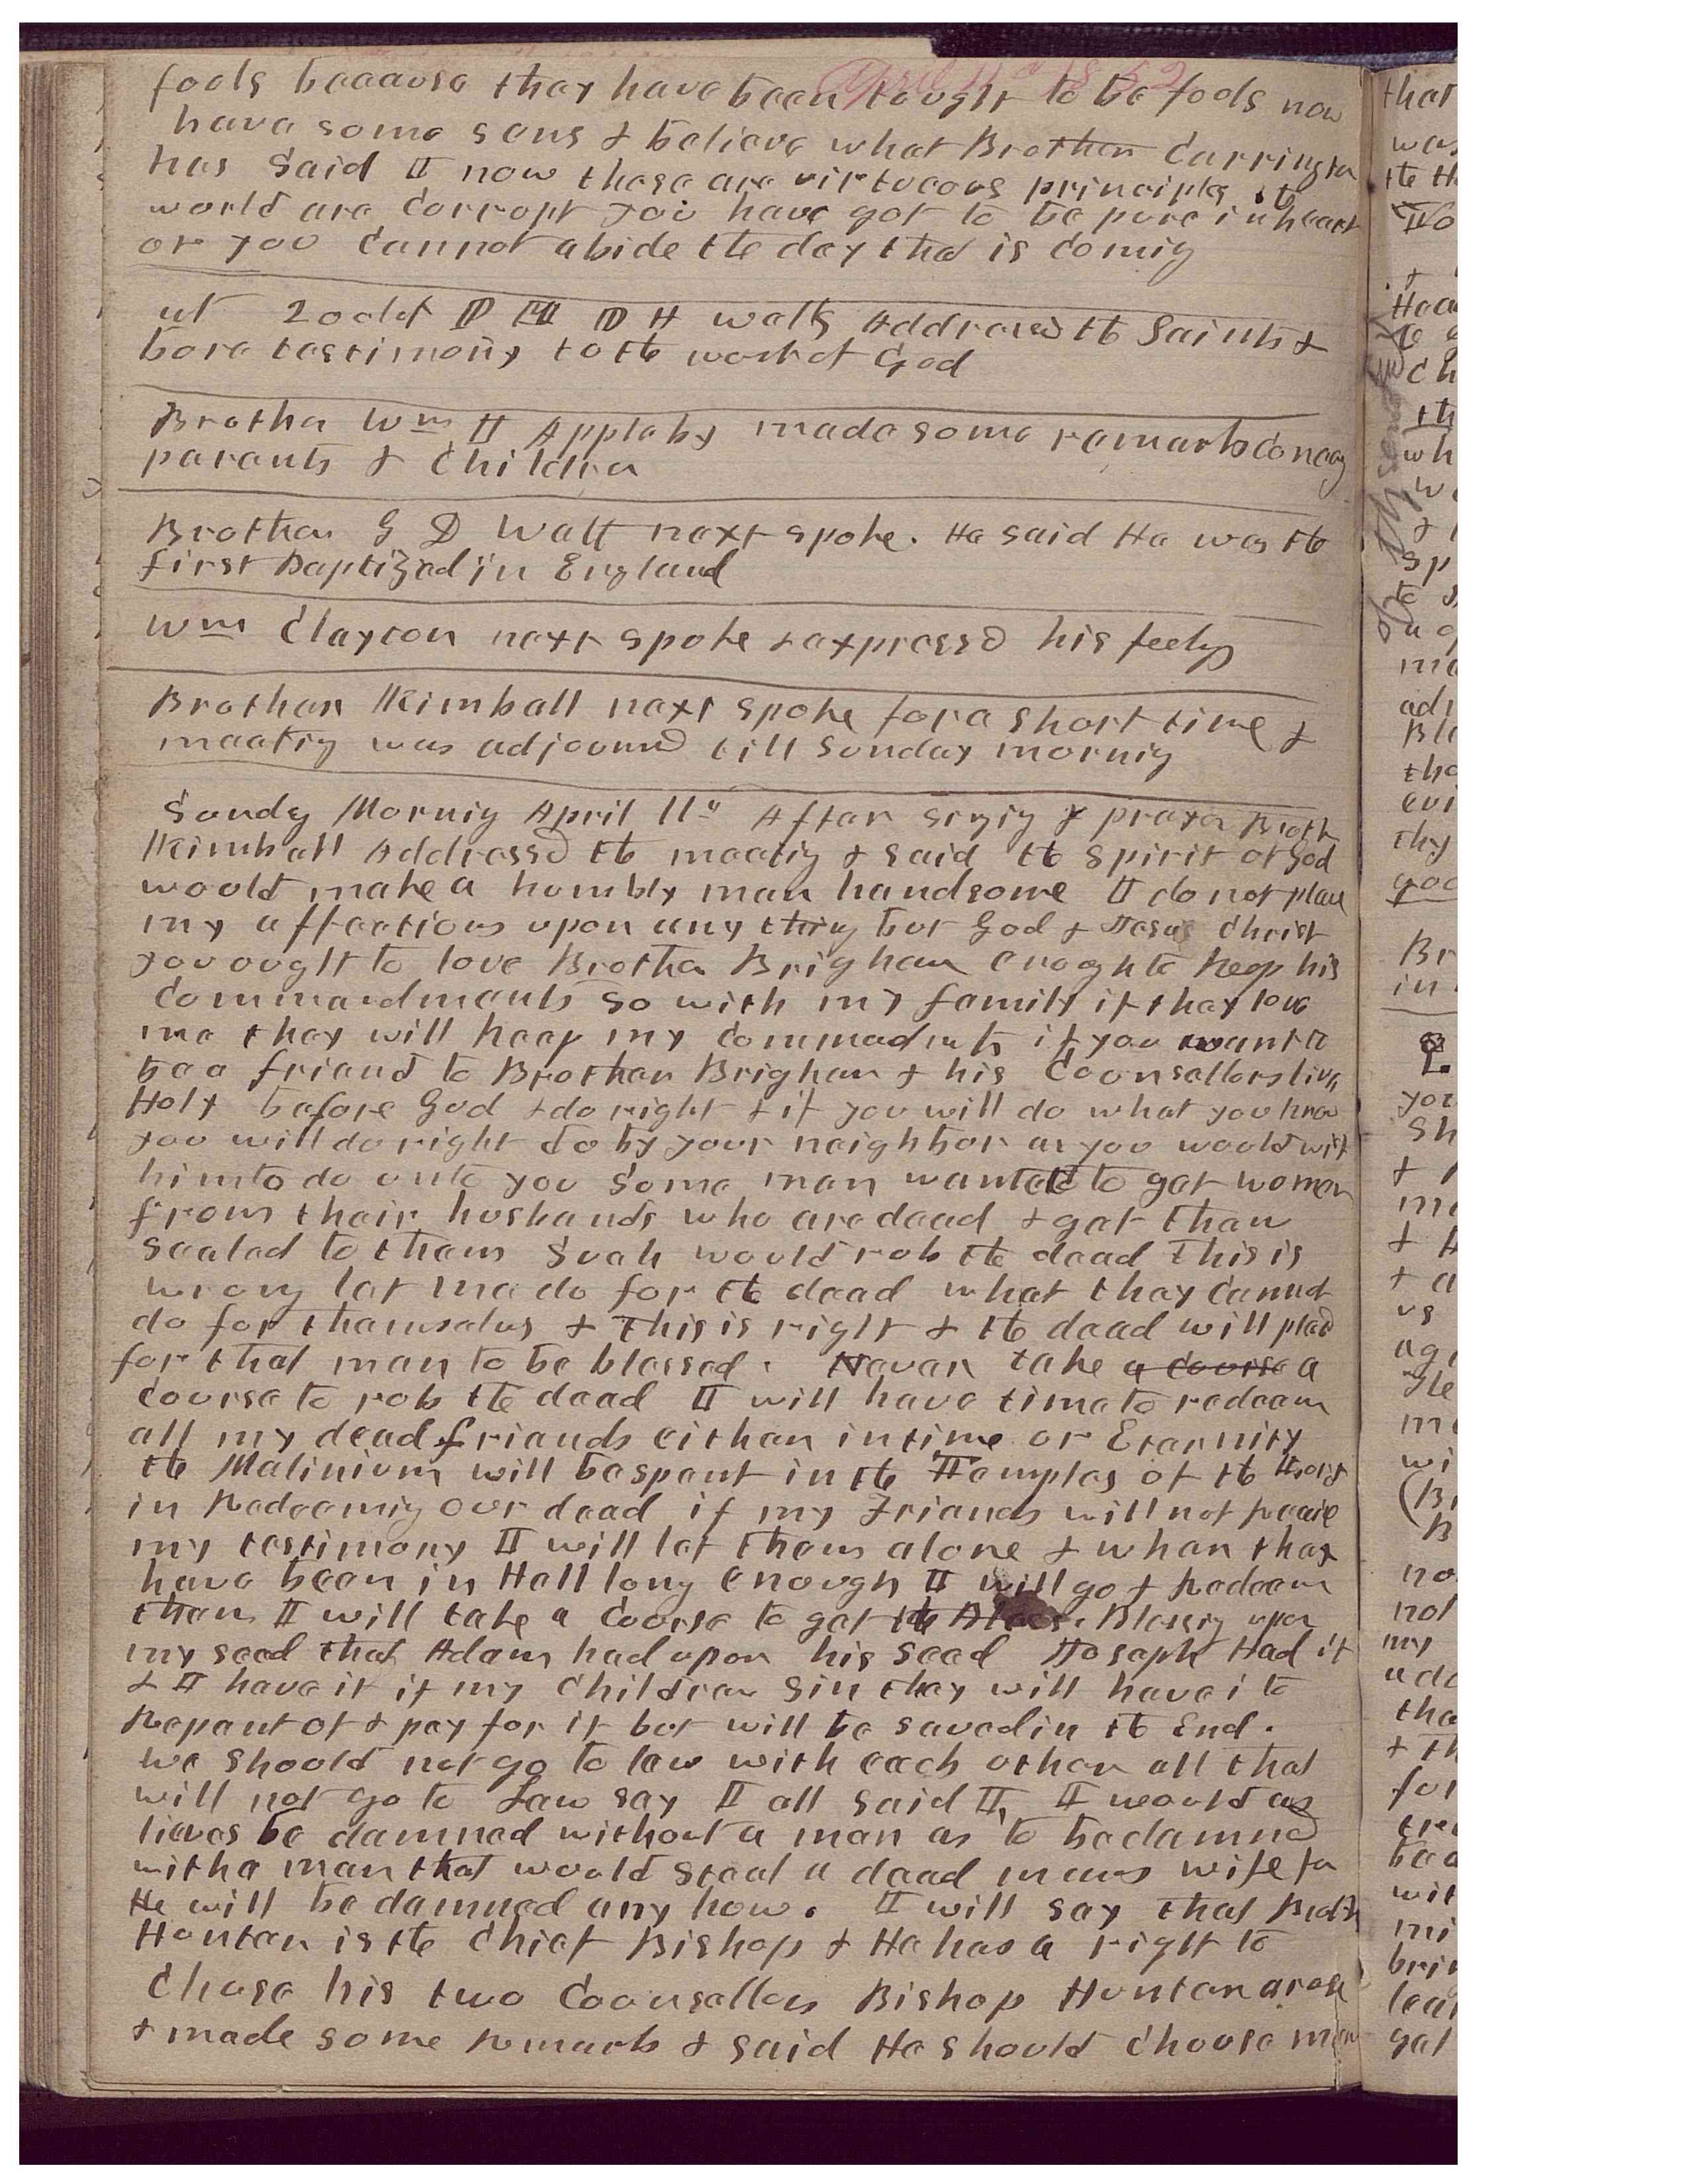 April 11th 1852
fools because they have been taught to be fools now
have some sens & believe what Brother Carrington
has said I now these are virtucous principles the
world are corropt you have got to be pure in heart
or you cannot abide the day that is comig
at 2 oclok P M D H Wells Addressed the Saints &
bore testimony to the work of God
Brother Wm I Appleby made some remarks concerng
parents & children
Brother G D Watt next spoke. He said He was the
first Baptized in England
Wm Clayton next spoke & expressed his feelgs
Brother Kimball next spoke for a short time &
meetig was adjournd till Sunday mornig
Sundy Mornig April 11th After singig & prayer Broth
Kimball Addressed the meetig & said the spirit of God
would make a humbly man handsome I do not place
my affections upon any thing but God & Jesus Christ
you ought to love Brother Brigham enough to keep his
commandments so with my family if they love
me they will keep my commadmts if you want to
be a friend to Brother Brigham & his Counsellors live
Holy before God & do right & if you will do what you know
you will do right do by your neighbor as you would wish
him to do unto you Some men wanted to get women
from their husbands who are dead & get them
sealed to them Such would rob the dead This is
wrong let me do for the dead what they cannot
do for themselves & this is right & the dead will plead
for that man to be blessed. Never take a course a
course to rob the dead I will have time to redeem
all my dead friends either in time or Eternity
the Malinium will be spent in the Temples of the Lord
in Redeemig our dead if my Friends will not receive
my testimony I will let them alone & when they
have been in Hell long enough I will go & Redeem
them I will take a course to get the Blessig upon
my seed that Adam had upon his seed Joseph Had it
& I have it if my children sin they will have i to
Repent of & pay for it but will be saved in the End.
we should not go to law with each other all that
will not go to Law say I all said I, I would as
lieves be damned without a man as to be damned
with a man that would steal a dead mans wife for
He will be damned any how. I will say that Broth
Hunter is the chief Bishop & He has a right to
chose his two Counsellors Bishop Hunter arose
& made some remarks & said He should choose men